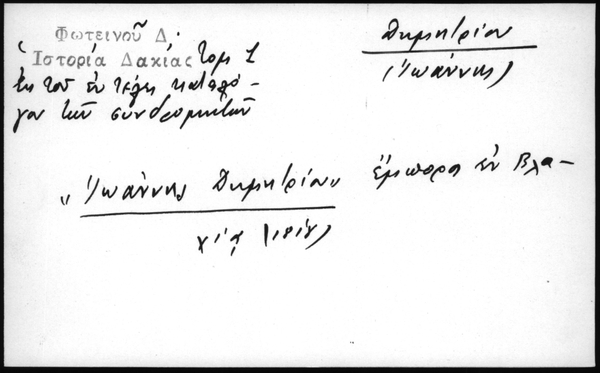 Φωτεινοῦ Δ.
Ἱστορία Δακίας τομ 1
ἐκ τοῦ ἐν τέλει καταλό-
γου τῶν συνδρομητῶν
Δημητρίου
(Ἰωάννης)
"Ἰωάννης Δημητρίου" ἔμπορος ἐν Βλα-
χίᾳ